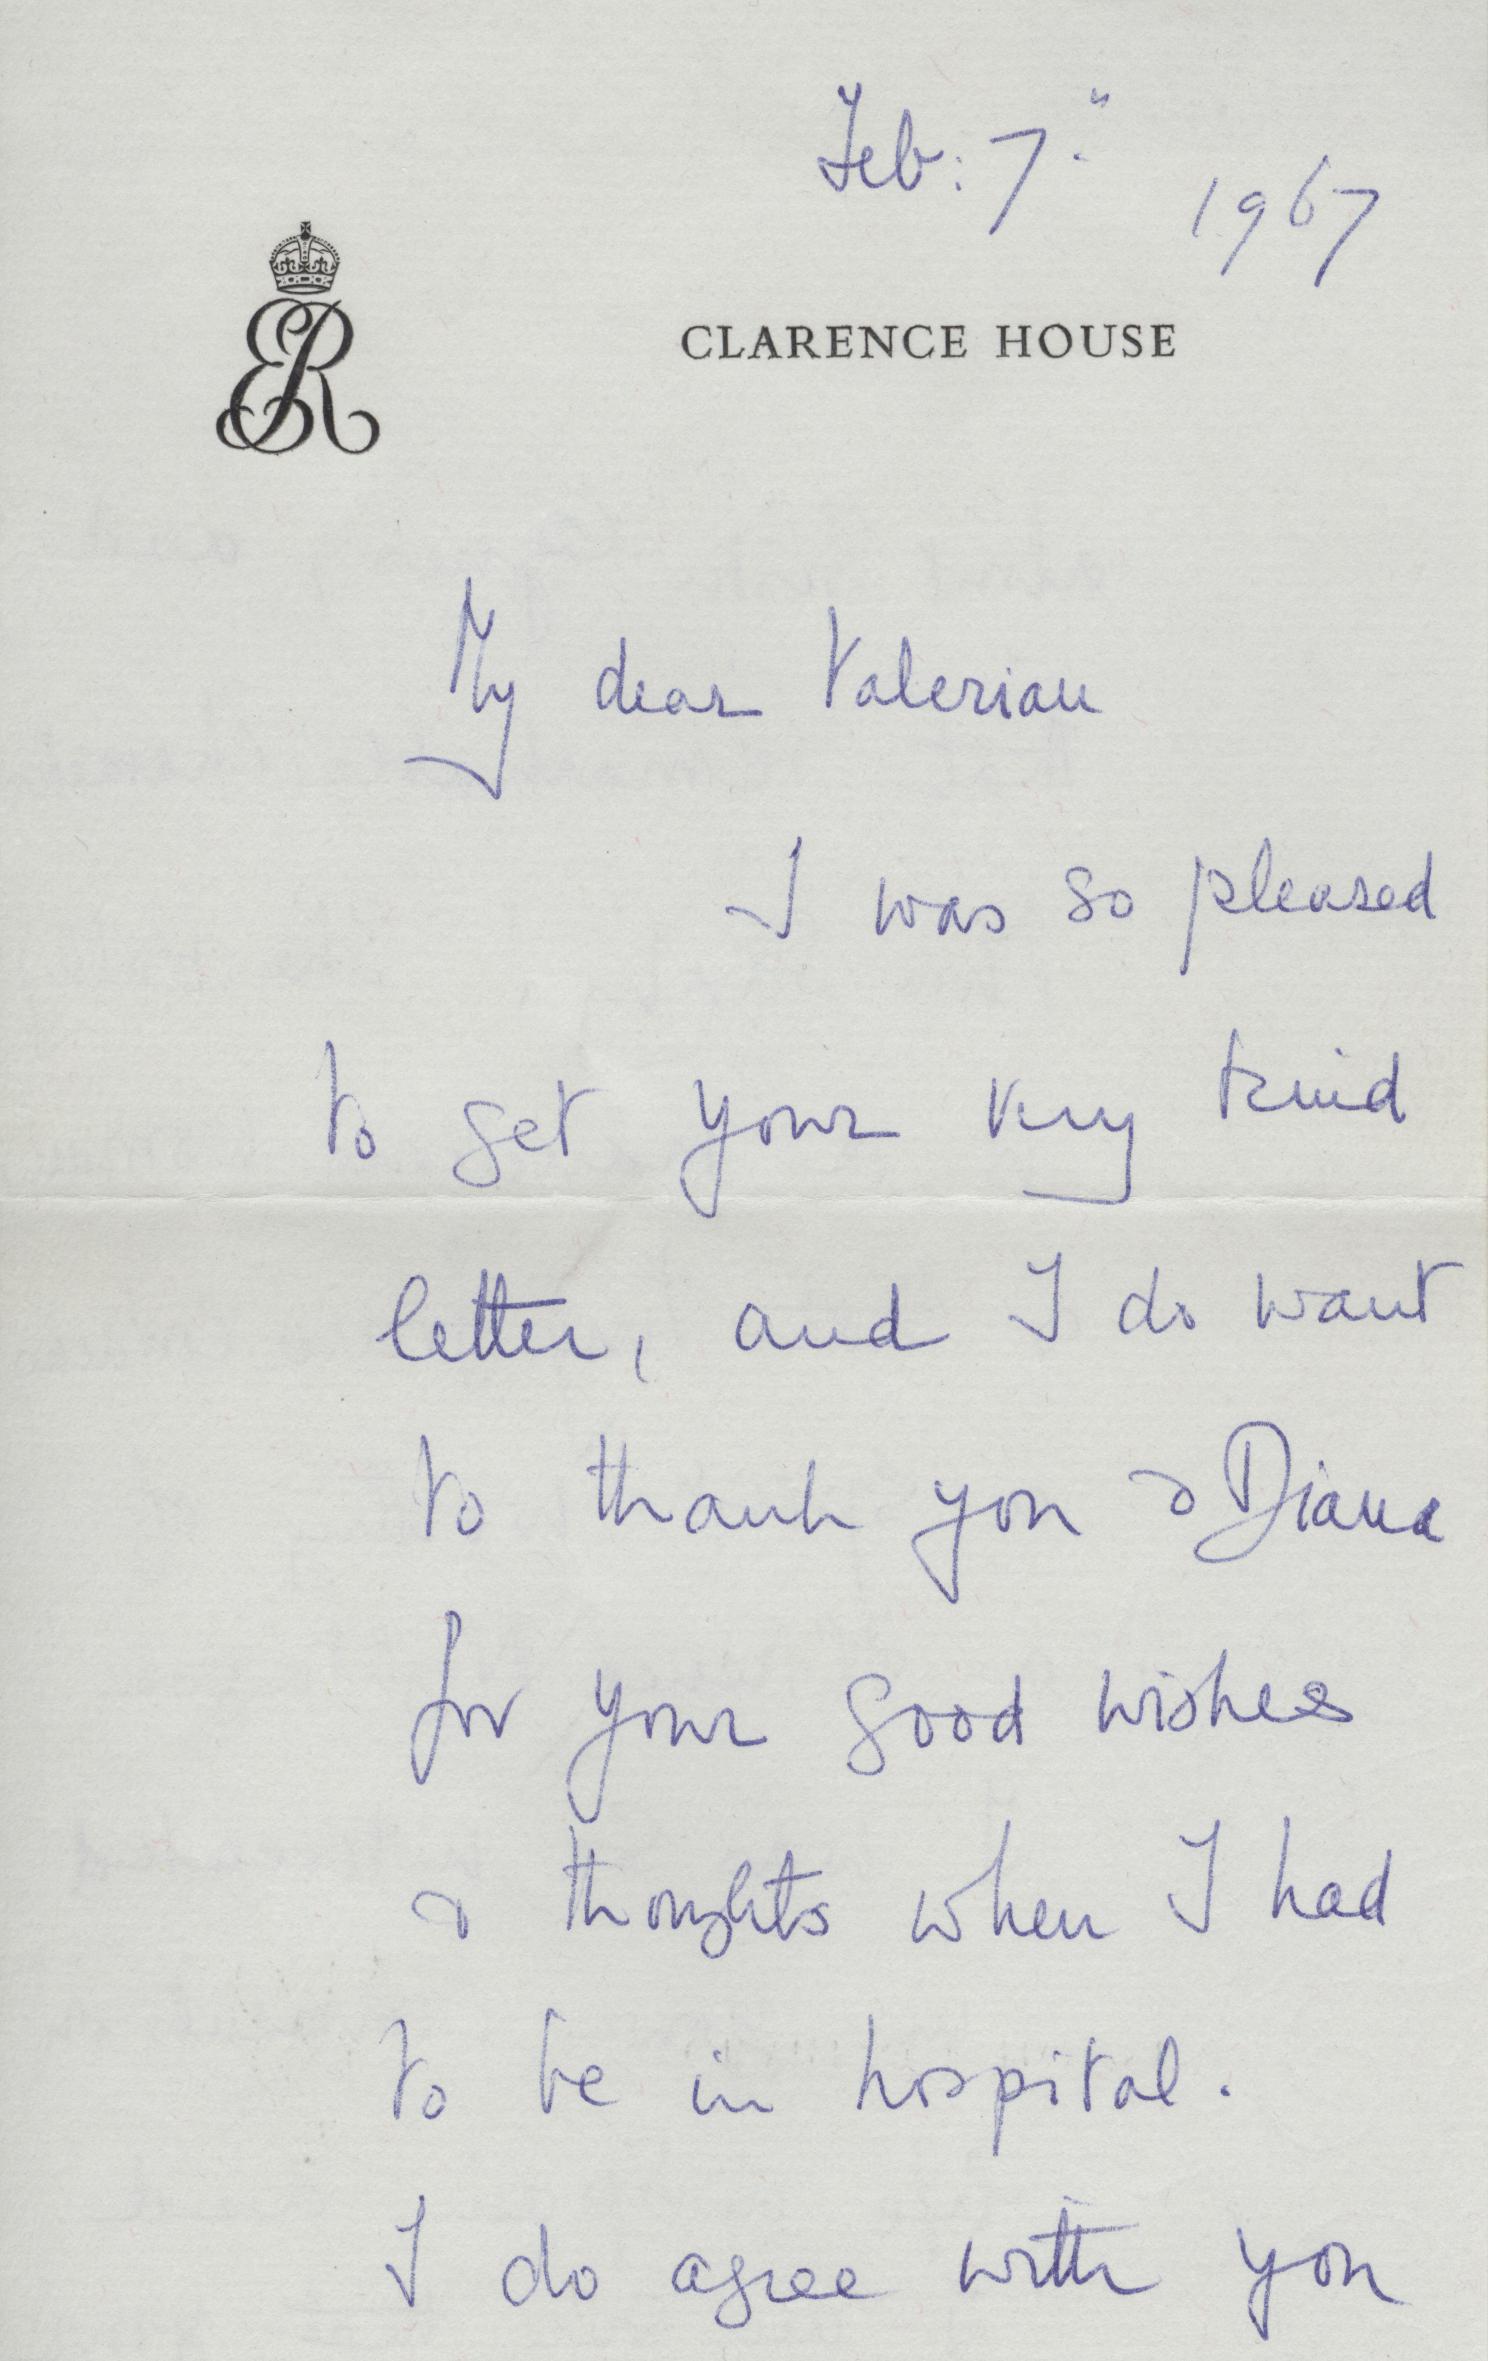 Feb: 7" 1967
ER
CLARENCE HOUSE
My dear Valerian
I was so pleased
to get your very kind
letter, and I do want
to thank you & Diana
for your good wishes
& thoughts when I had
to be in hospital.
I do agree with you